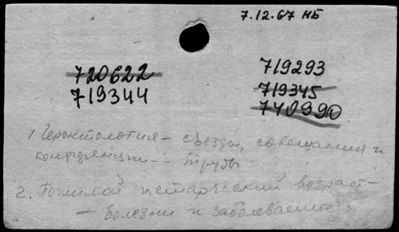 7.12.67 НБ
720622 719293
719344 719345
740990
1 Геронтология – съезды, совещания и
конференции – труды
2. Пожилой и старческий возраст –
– болезни и заболевания